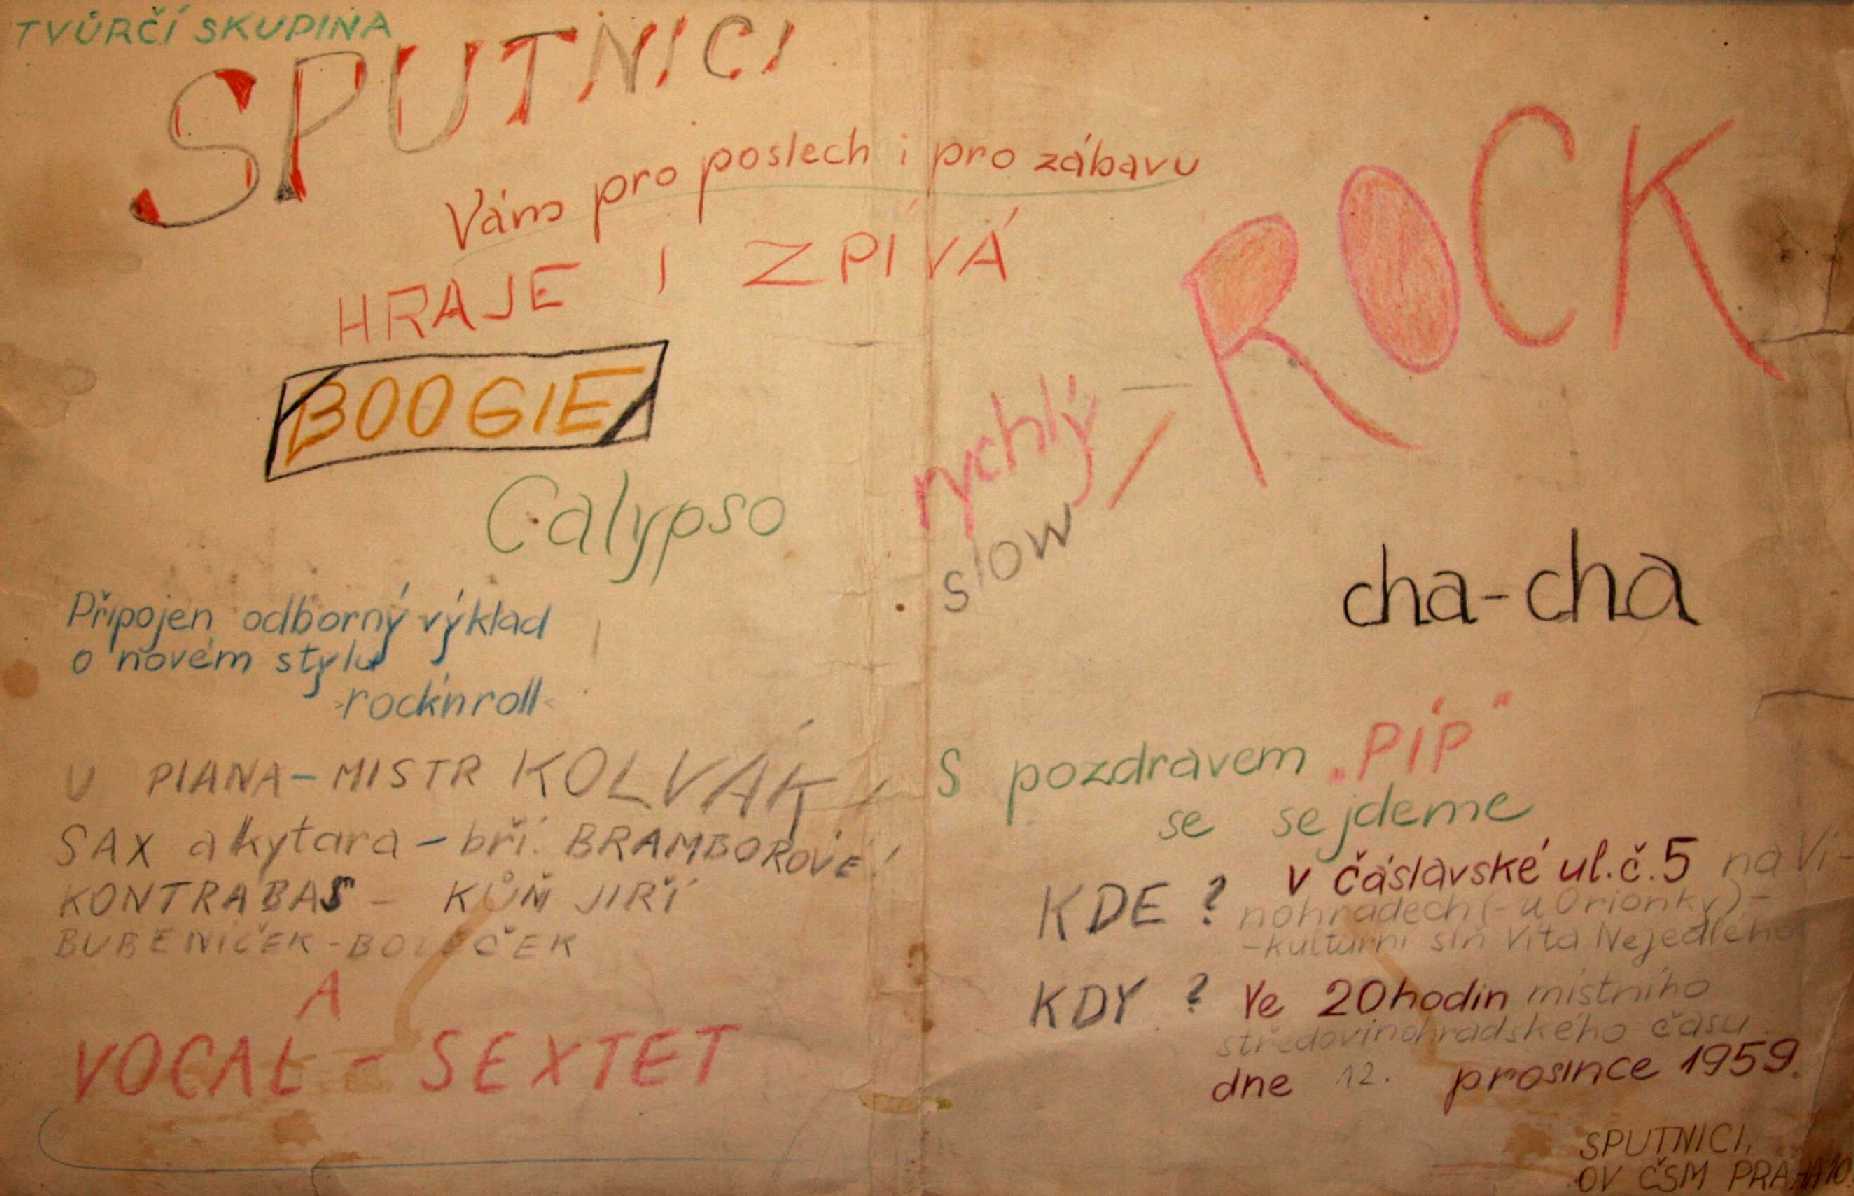 TVŮRČÍ SKUPINA
SPUTNICI
Vám pro poslech i pro zábavu
HRAJE I ZPÍVÁ
BOOGIE
Calypso
rychlý
slow
ROCK
cha-cha
Připojen odborný výklad
o novém stylu
rock'n roll
U PIANA - MISTR KOLVÁK,
SAX a kytara - bří. BRAMBOROVÉ!
KONTRABAS - KŮŇ JIŘÍ
BUBENÍČEK -
A
VOCAL - SEXTET
S pozdravem „PÍP"
se sejdeme
KDE? v čáslavské ul. č. 5 na Vi-
nohradech (- u Orionky) -
- kulturní síň Víta Nejedlého
KDY? Ve 20 hodin místního
středovinohradského času
dne 12. prosince 1959.
SPUTNICI,
OV ČSM PRAHA 10.